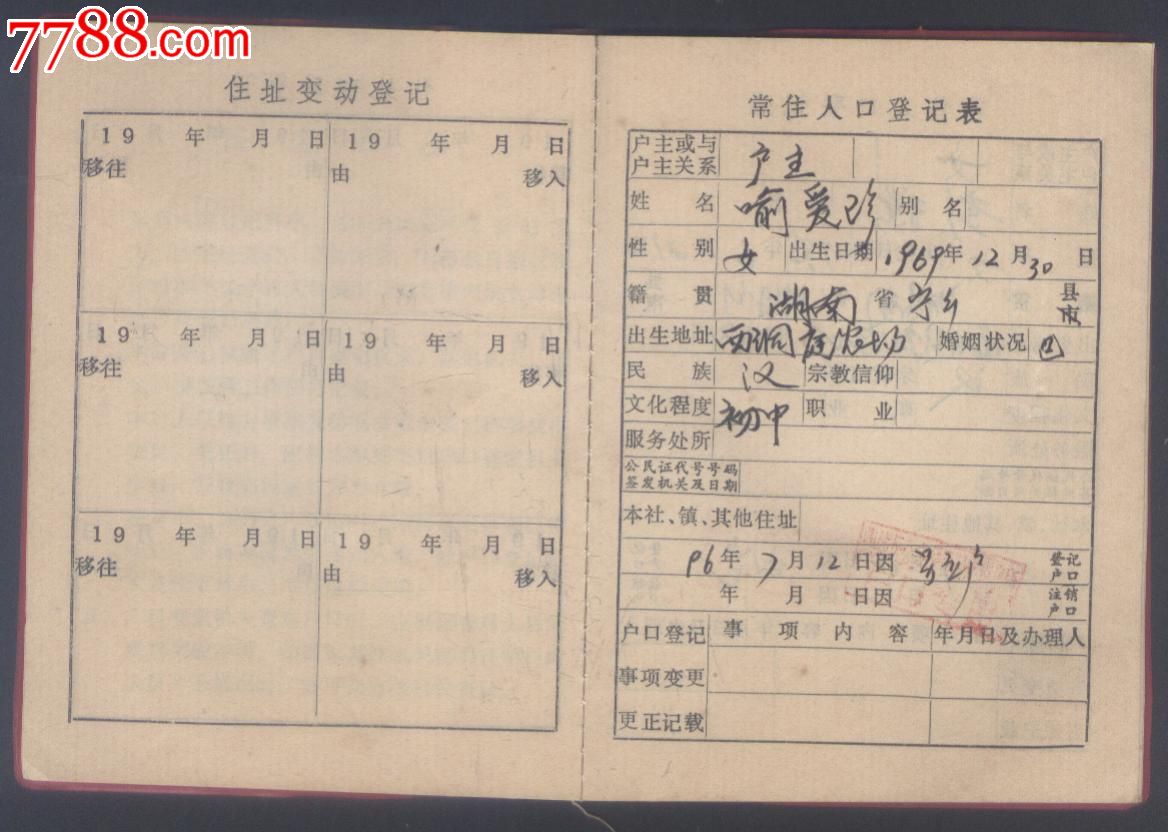 7788.com
住址变动登记
19 年 月 日 19 年 月 日
移往 由 移入
19 年 月 日 19 年 月 日
移往 由 移入
19 年 月 日 19 年 月 日
移往 由 移入
常住人口登记表
户主或与户主关系 户主
姓名 喻爱珍 别名
性别 女 出生日期 1969年12月30日
籍贯 湖南省宁乡县市
出生地址 西洞庭农场 婚姻状况 已
民族 汉 宗教信仰
文化程度 初中 职业
服务处所
公民证代号号码
签发机关及日期
本社、镇、其他住址
96年7月12日因 登记户口
年 月 日因 注销户口
户口登记 事项内容 年月日及办理人
事项变更
更正记载